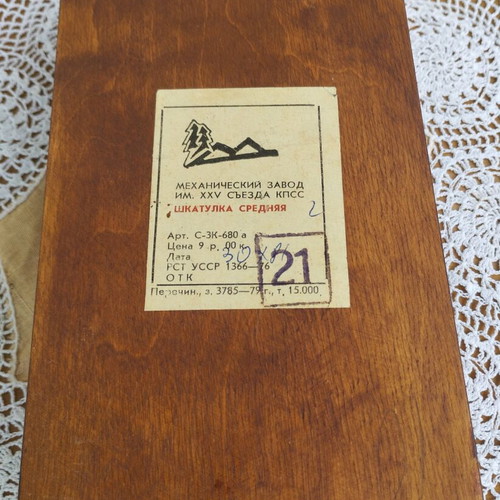 МЕХАНИЧЕСКИЙ ЗАВОД
ИМ. XXV СЪЕЗДА КПСС
ШКАТУЛКА СРЕДНЯЯ 2
Арт. С-ЗК-680 а
Цена 9 р. 00 к.
Дата 30
РСТ УССР 1366—76
ОТК
21
з. 3785—79 г., т. 15.000